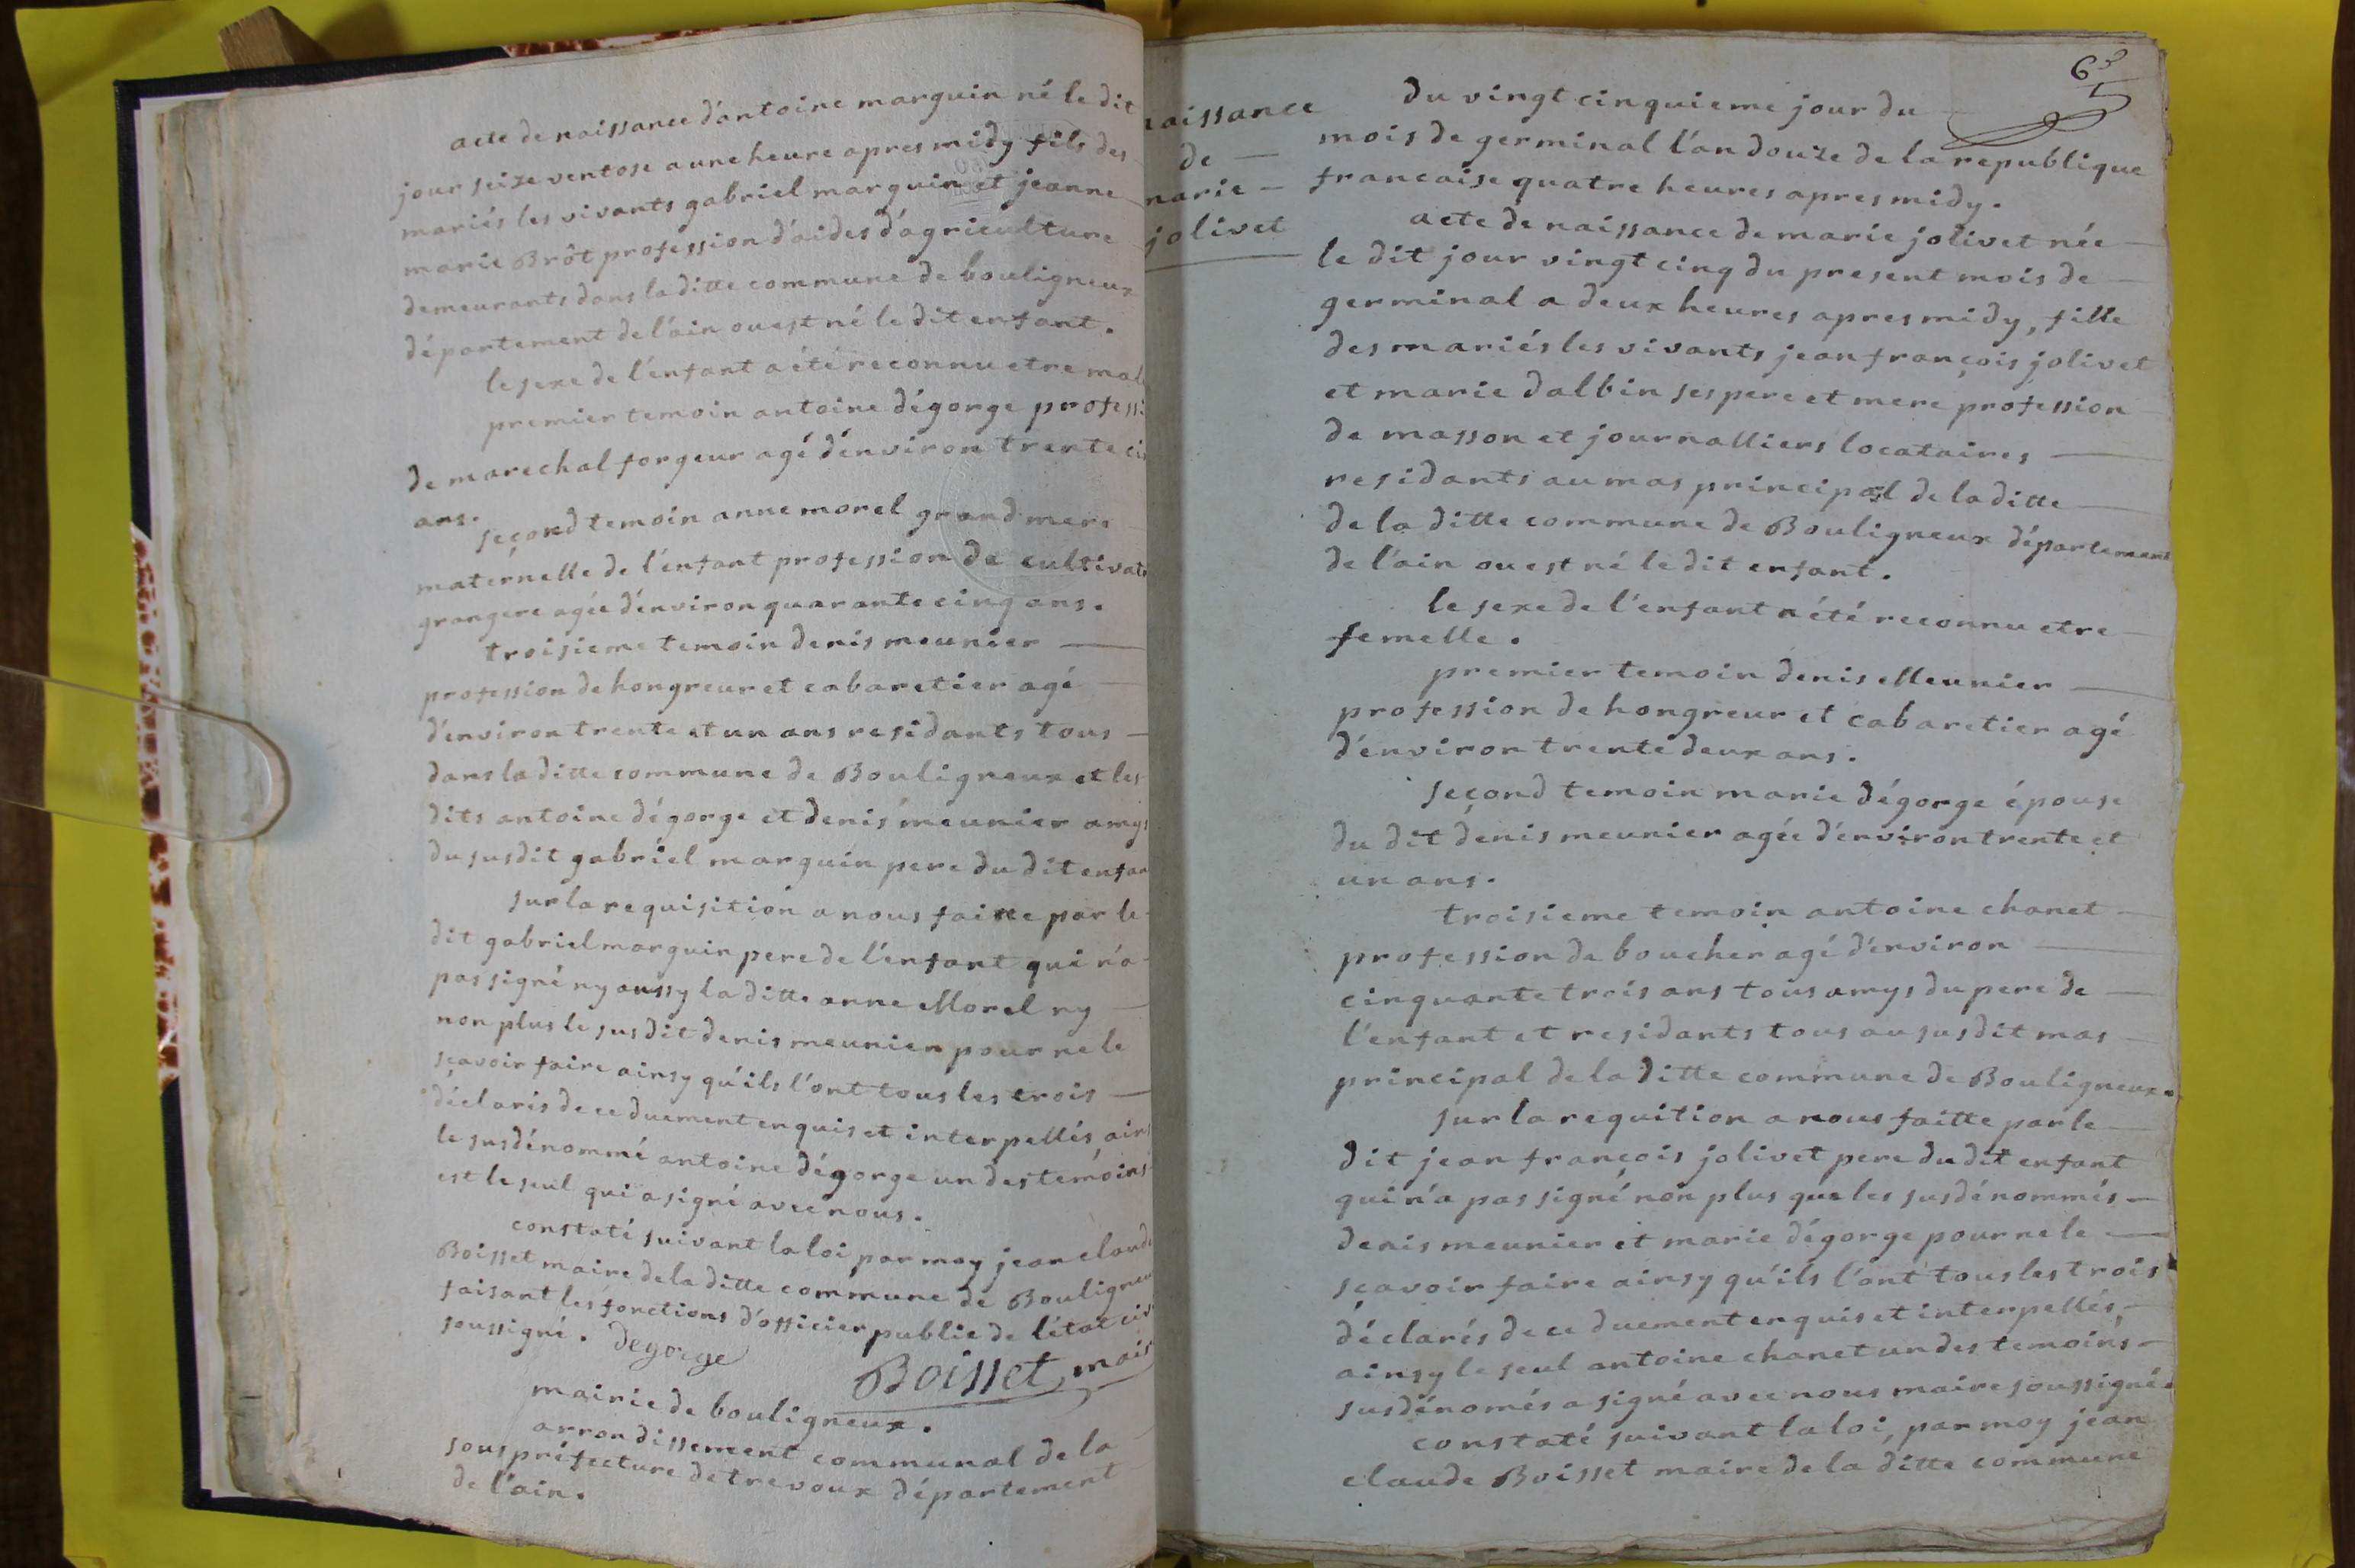 acte de naissance d'antoine marguin né le dit
jour seize ventose a une heure apres midy fils des
mariés les vivants gabriel marguin et jeanne
marie Brôt profession d'aides d'agriculture
demeurants dans la ditte commune de bouligneux
département de l'ain ou est né le dit enfant.
le sexe de l'enfant a été reconnu etre mal
premier temoin antoine dégorge professi
de marechal forgeur agé d'environ trente ci
ans.
seçond temoin anne morel grand mere
maternelle de l'enfant profession de cultivat
grangere agée d'environ quarante cinq ans.
troisieme temoin denis meunier
profession de hongreur et cabaretier agé
d'environ trente et un ans residants tous
dans la ditte commune de Bouligneux et les
dits antoine dégorge et denis meunier amys
du susdit gabriel marguin pere du dit enfan
sur la requisition a nous faitte par le
dit gabriel marguin pere de l'enfant qui n'a
pas signé ny aussy la ditte anne Morel ny
non plus le susdit denis meunier pour ne le
sçavoir faire ainsy qu'ils l'ont tous les trois
déclaris de ce duement enquis et interpellés, ains
le susdénommé antoine dégorge un des temoins
est le seul qui a signé avec nous.
constaté suivant la loi par moy jean claude
Boisset maire de la ditte commune de Bouligneu
faisant les fonctions d'officier public de l'état civi
soussigné. degorge
Boisset mair
mairie de bouligneux.
arrondissement communal de la
sous préfecture de trevoux département
de l'ain.
65
naissance
de
marie
jolivet
du vingt cinquieme jour du
mois de germinal l'an douze de la republique
francaise quatre heures apres midy.
acte de naissance de marie jolivet née
le dit jour vingt cinq du present mois de
germinal a deux heures apres midy, fille
des mariés les vivants jean françois jolivet
et marie dalbin ses pere et mere profession
de masson et journalliers locataires
residants au mas principal de la ditte
de la ditte commune de Bouligneux département
de l'ain ou est né le dit enfant.
le sexe de l'enfant a été reconnu etre
femelle.
premier temoin denis Meunier
profession de hongreur et cabaretier agé
d'environ trente deux ans.
seçond temoin marie dégorge épouse
du dit denis meunier agée d'environ trente et
un ans.
troisieme temoin antoine chanet
profession de boucher agé d'environ
cinquante trois ans tous amys du pere de
l'enfant et residants tous au susdit mas
principal de la ditte commune de Bouligneux.
sur la requition a nous faitte par le
dit jean françois jolivet pere du dit enfant
qui n'a pas signé non plus que les susdénommés
denis meunier et marie dégorge pour ne le
sçavoir faire ainsy qu'ils l'ont tous les trois
déclarés de ce duement enquis et interpellés,
ainsy le seul antoine chanet un des temoins
susdénomés a signé avec nous maire soussigné.
constaté suivant la loi, par moy jean
claude Boisset maire de la ditte commune